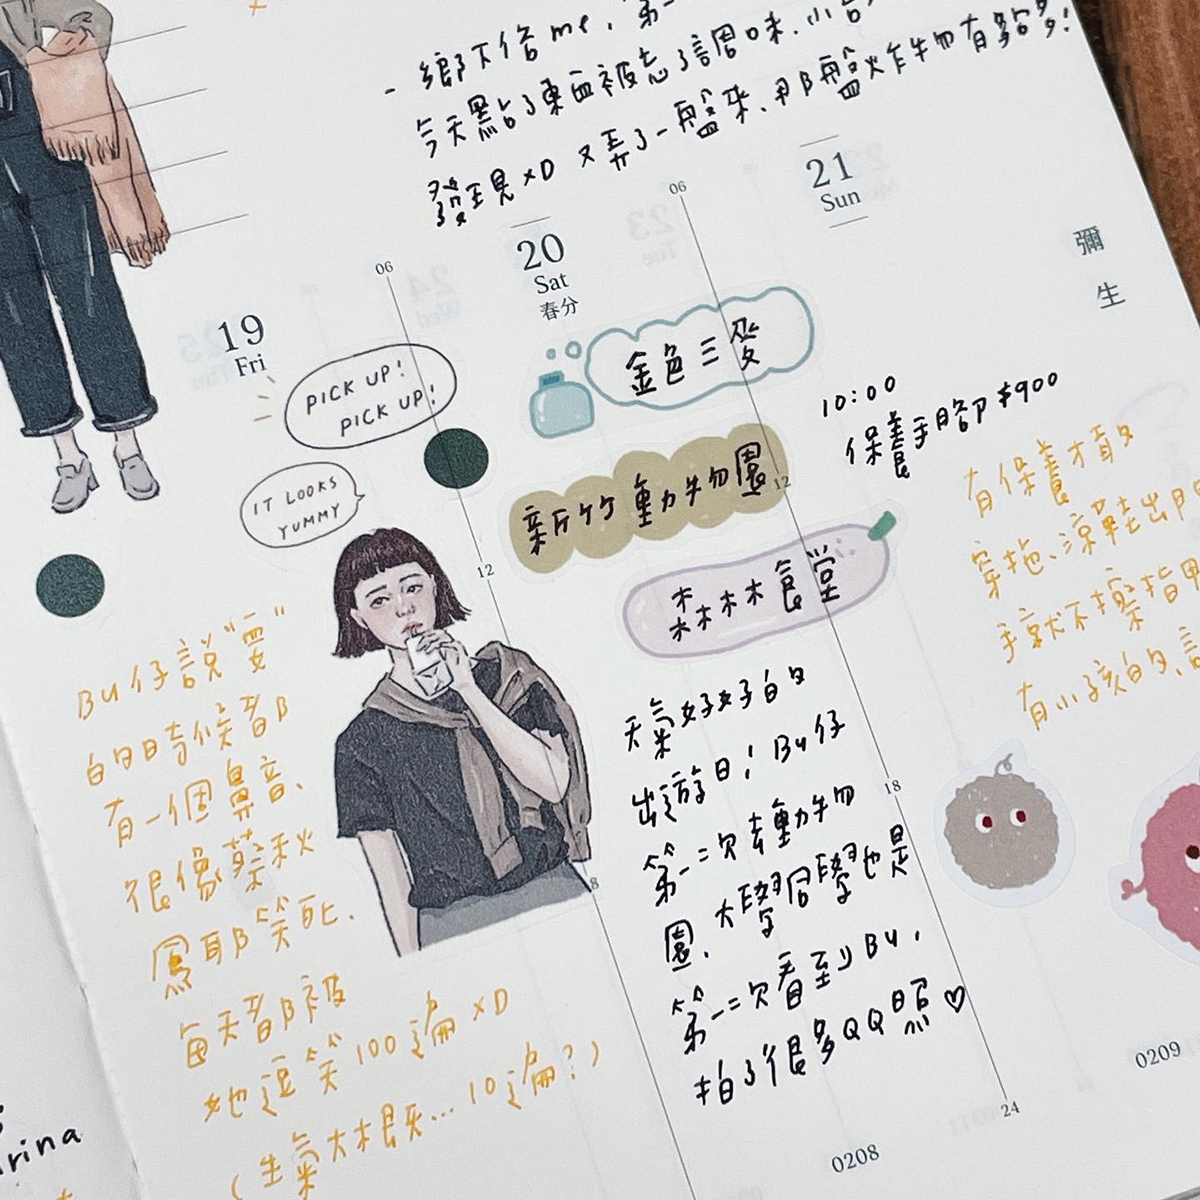 - 鄉下佮 me, 第一
今天點了東西被忘了這周味、小台
發現 XD 又弄了一盤來、那盤炸物有夠多!
19
Fri
06
PICK UP!
PICK UP!
IT LOOKS
YUMMY
12
18
BU仔說"要"
的時候都
有一個鼻音、
很像蔡秋
鳳耶笑死.
每天都被
她逗笑100遍 XD
(生氣大概…10遍?)
rina
20
Sat
春分
06
金色三麥
新竹動物園
12
森林食堂
天氣好好的
出遊日! BU仔
第一次去動物
園、大學同學也是
第一次看到BU,
拍了很多QQ照♡
18
24
0208
21
Sun
彌
生
10:00
保養手腳 $900
有保養才敢
穿拖、涼鞋出門
手就不擦指甲
有小孩的
0209